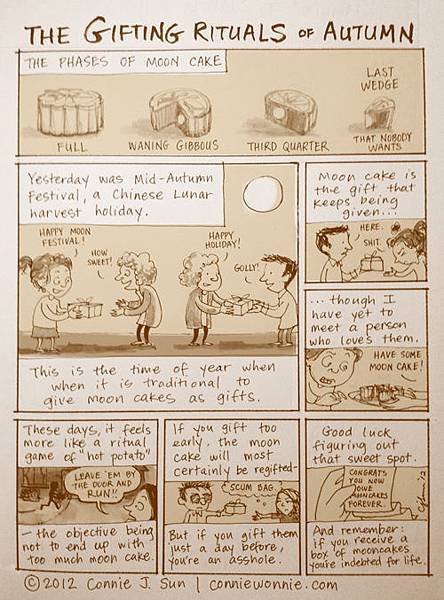 THE GIFTING RITUALS OF AUTUMN
THE PHASES OF MOON CAKE
FULL
WANING GIBBOUS
THIRD QUARTER
LAST
WEDGE
THAT NOBODY
WANTS
Yesterday was Mid-Autumn
Festival, a Chinese Lunar
harvest holiday.
HAPPY MOON
FESTIVAL!
HOW
SWEET!
HAPPY
HOLIDAY!
GOLLY!
This is the time of year when
when it is traditional to
give moon cakes as gifts.
Moon cake is
the gift that
keeps being
given...
HERE.
SHIT.
...though I
have yet to
meet a person
who loves them.
HAVE SOME
MOON CAKE!
These days, it feels
more like a ritual
game of "hot potato"
LEAVE 'EM BY
THE DOOR AND
RUN!!
— the objective being
not to end up with
too much moon cake.
If you gift too
early, the moon
cake will most
certainly be regifted-
SCUM BAG.
But if you gift them
just a day before,
you're an asshole.
Good luck
figuring out
that sweet spot.
CONGRATS
YOU NOW
OWE
MOONCAKES
FOREVER.
And remember:
if you receive a
box of mooncakes
you're indebted for life.
© 2012 Connie J. Sun | conniewonnie.com